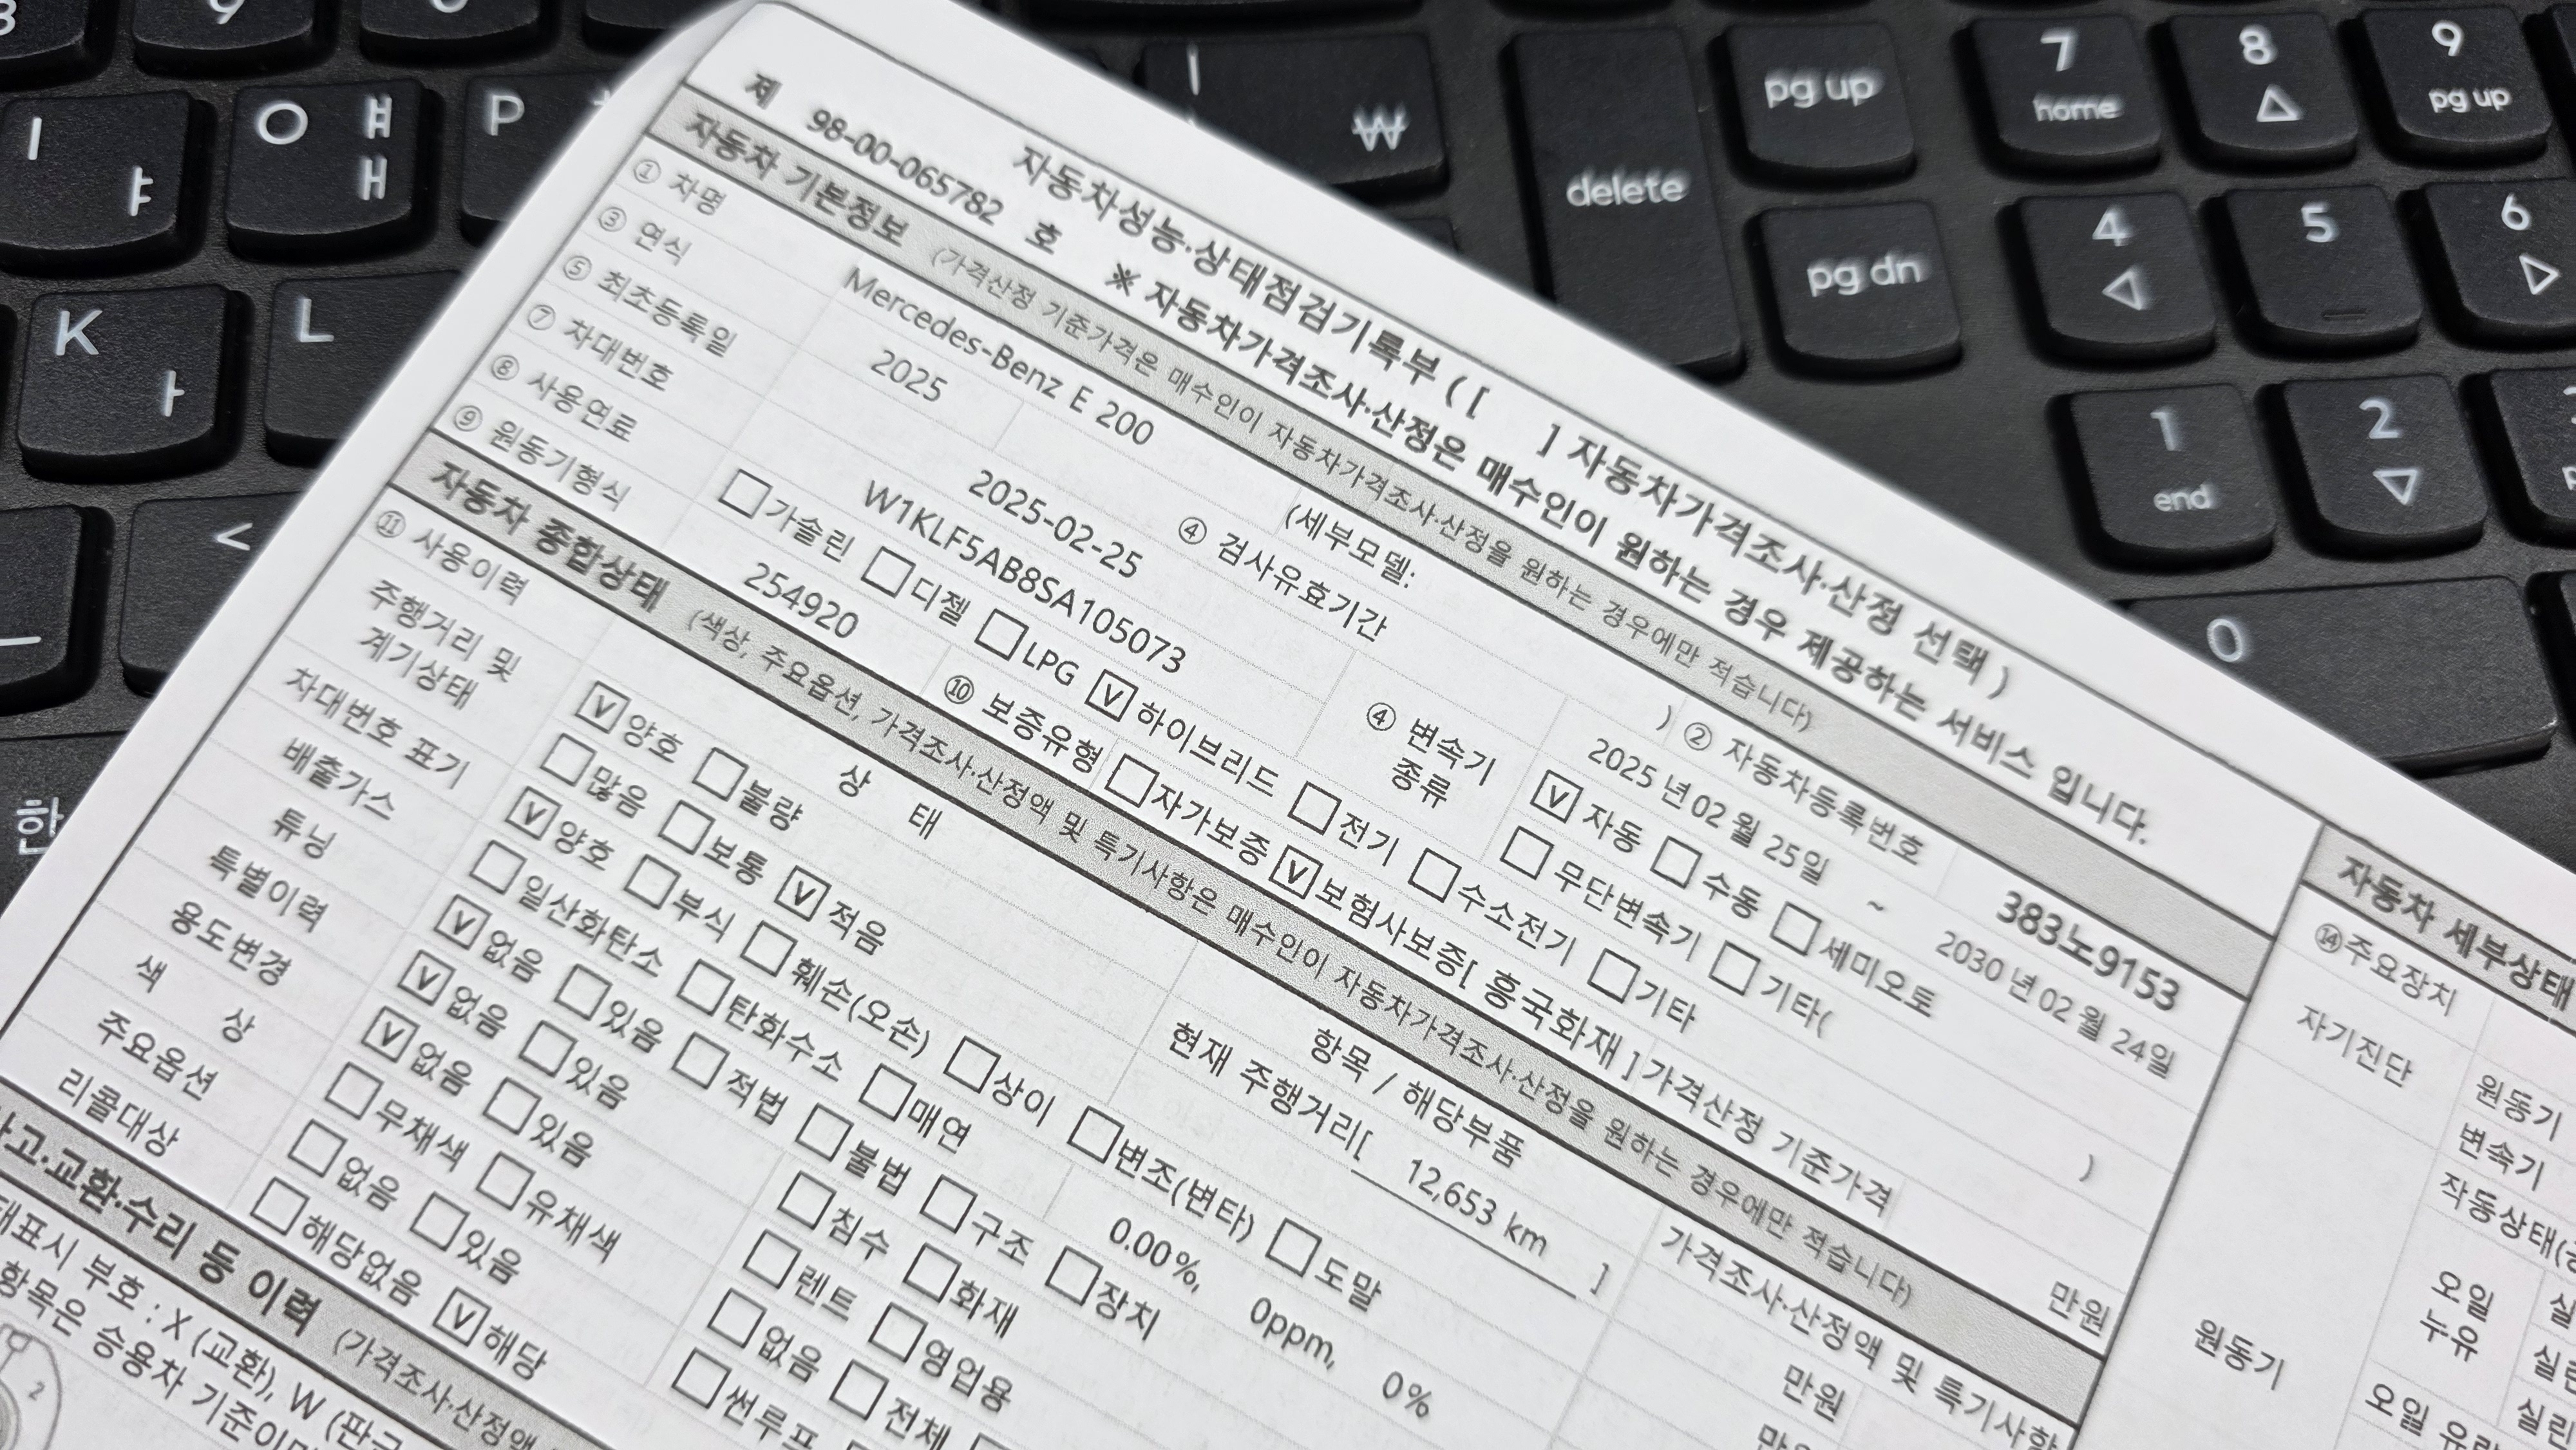 자동차성능·상태점검기록부 ( [ ] 자동차가격조사·산정 선택 )
제 98-00-065782 호 ※ 자동차가격조사·산정은 매수인이 원하는 경우 제공하는 서비스 입니다.
자동차 기본정보 (가격산정 기준가격은 매수인이 자동차가격조사·산정을 원하는 경우에만 적습니다)
① 차명 Mercedes-Benz E 200 (세부모델: ) ② 자동차등록번호 383노9153
③ 연식 2025 ④ 검사유효기간 2025 년 02 월 25일 ~ 2030 년 02 월 24일
⑤ 최초등록일 2025-02-25 ④ 변속기 종류 ☑ 자동 ☐ 수동 ☐ 세미오토
⑦ 차대번호 W1KLF5AB8SA105073 ☐ 무단변속기 ☐ 기타( )
⑧ 사용연료 ☐ 가솔린 ☐ 디젤 ☐ LPG ☑ 하이브리드 ☐ 전기 ☐ 수소전기 ☐ 기타
⑨ 원동기형식 254920 ⑩ 보증유형 ☐ 자가보증 ☑ 보험사보증[ 흥국화재 ] 가격산정 기준가격 만원
자동차 종합상태 (색상, 주요옵션, 가격조사·산정액 및 특기사항은 매수인이 자동차가격조사·산정을 원하는 경우에만 적습니다)
⑪ 사용이력 상 태 항목 / 해당부품 가격조사·산정액 및 특기사항
주행거리 및 ☑ 양호 ☐ 불량 현재 주행거리[ 12,653 km ] 만원
계기상태 ☐ 많음 ☐ 보통 ☑ 적음
차대번호 표기 ☑ 양호 ☐ 부식 ☐ 훼손(오손) ☐ 상이 ☐ 변조(변타) ☐ 도말 만원
배출가스 ☐ 일산화탄소 ☐ 탄화수소 ☐ 매연 0.00%, 0ppm, 0%
튜닝 ☑ 없음 ☐ 있음 ☐ 적법 ☐ 불법 ☐ 구조 ☐ 장치
특별이력 ☑ 없음 ☐ 있음 ☐ 침수 ☐ 화재
용도변경 ☑ 없음 ☐ 있음 ☐ 렌트 ☐ 영업용
색 상 ☐ 무채색 ☐ 유채색 ☐ 없음 ☐ 전체
주요옵션 ☐ 없음 ☐ 있음 ☐ 썬루프
리콜대상 ☐ 해당없음 ☑ 해당
사고·교환·수리 등 이력 (가격조사·산정액
표시 부호 : X (교환), W (판금
항목은 승용차 기준이며
2
자동차 세부상태
⑭주요장치
자기진단
원동기
변속기
작동상태
원동기
오일
누유
오일 유
I ㅑ
O ㅒ ㅐ
P
K ㅏ
L
<
한
| ₩
delete
pg up
pg dn
7 home
8
9 pg up
4
5
6
1 end
2
0